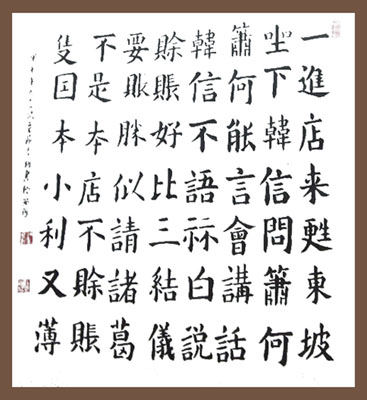 一進店来甦東坡
坐下韓信問簫何
簫何能言會講話
韓信不語祘白説
賒賬好比三結儀
要賬勝似請諸葛
不是本店不賒賬
隻因本小利又薄